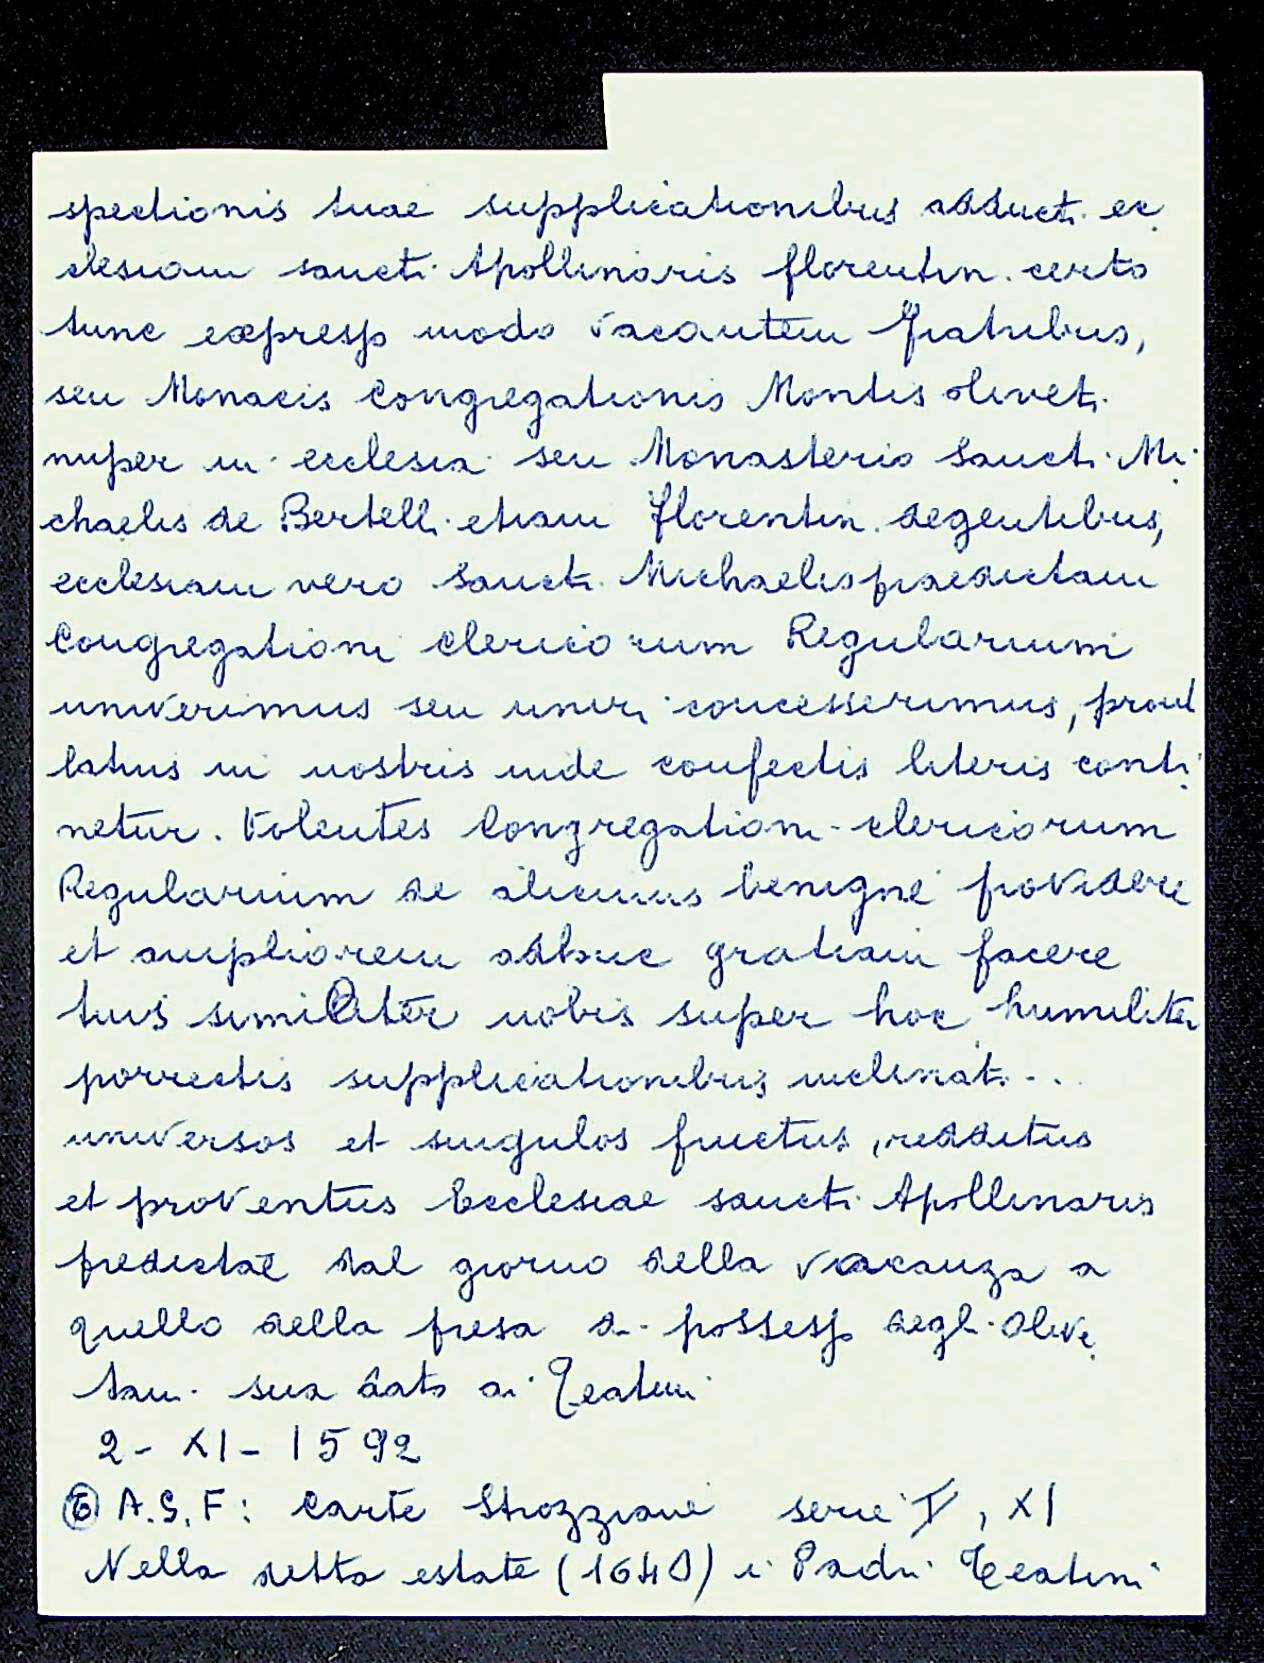 spectionis tuae supplicationibus adducti ec
clesiam sancti Apollinaris florentin. certo
tunc expresso modo vacantem fratribus,
seu Monacis Congregationis Montis oliveti
nuper in ecclesia seu Monasterio Sancti Mi
chaelis de Bertelli etiam florentin. degentibus,
ecclesiam vero Sancti Michaelis praedictam
Congregationi clericorum Regularium
univerimus seu uniri concesserimus, prout
latius in nostris inde confectis literis conti
netur. Volentes Congregationi clericorum
Regularium de alicuius benigne providere
et ampliorem adhuc gratiam facere
tuis similiter nobis super hoc humiliter
porrectis supplicationibus inclinati...
universos et singulos fructus, redditus
et proventus Ecclesiae sancti Apollinaris
predictae dal giorno della vacanza a
quello della presa di possesso degli Olive
tani sia dato ai Teatini
2 - XI - 1592
⑥ A.S.F: Carte Strozziane serie V, XI
Nella detta estate (1640) i Padri Teatini